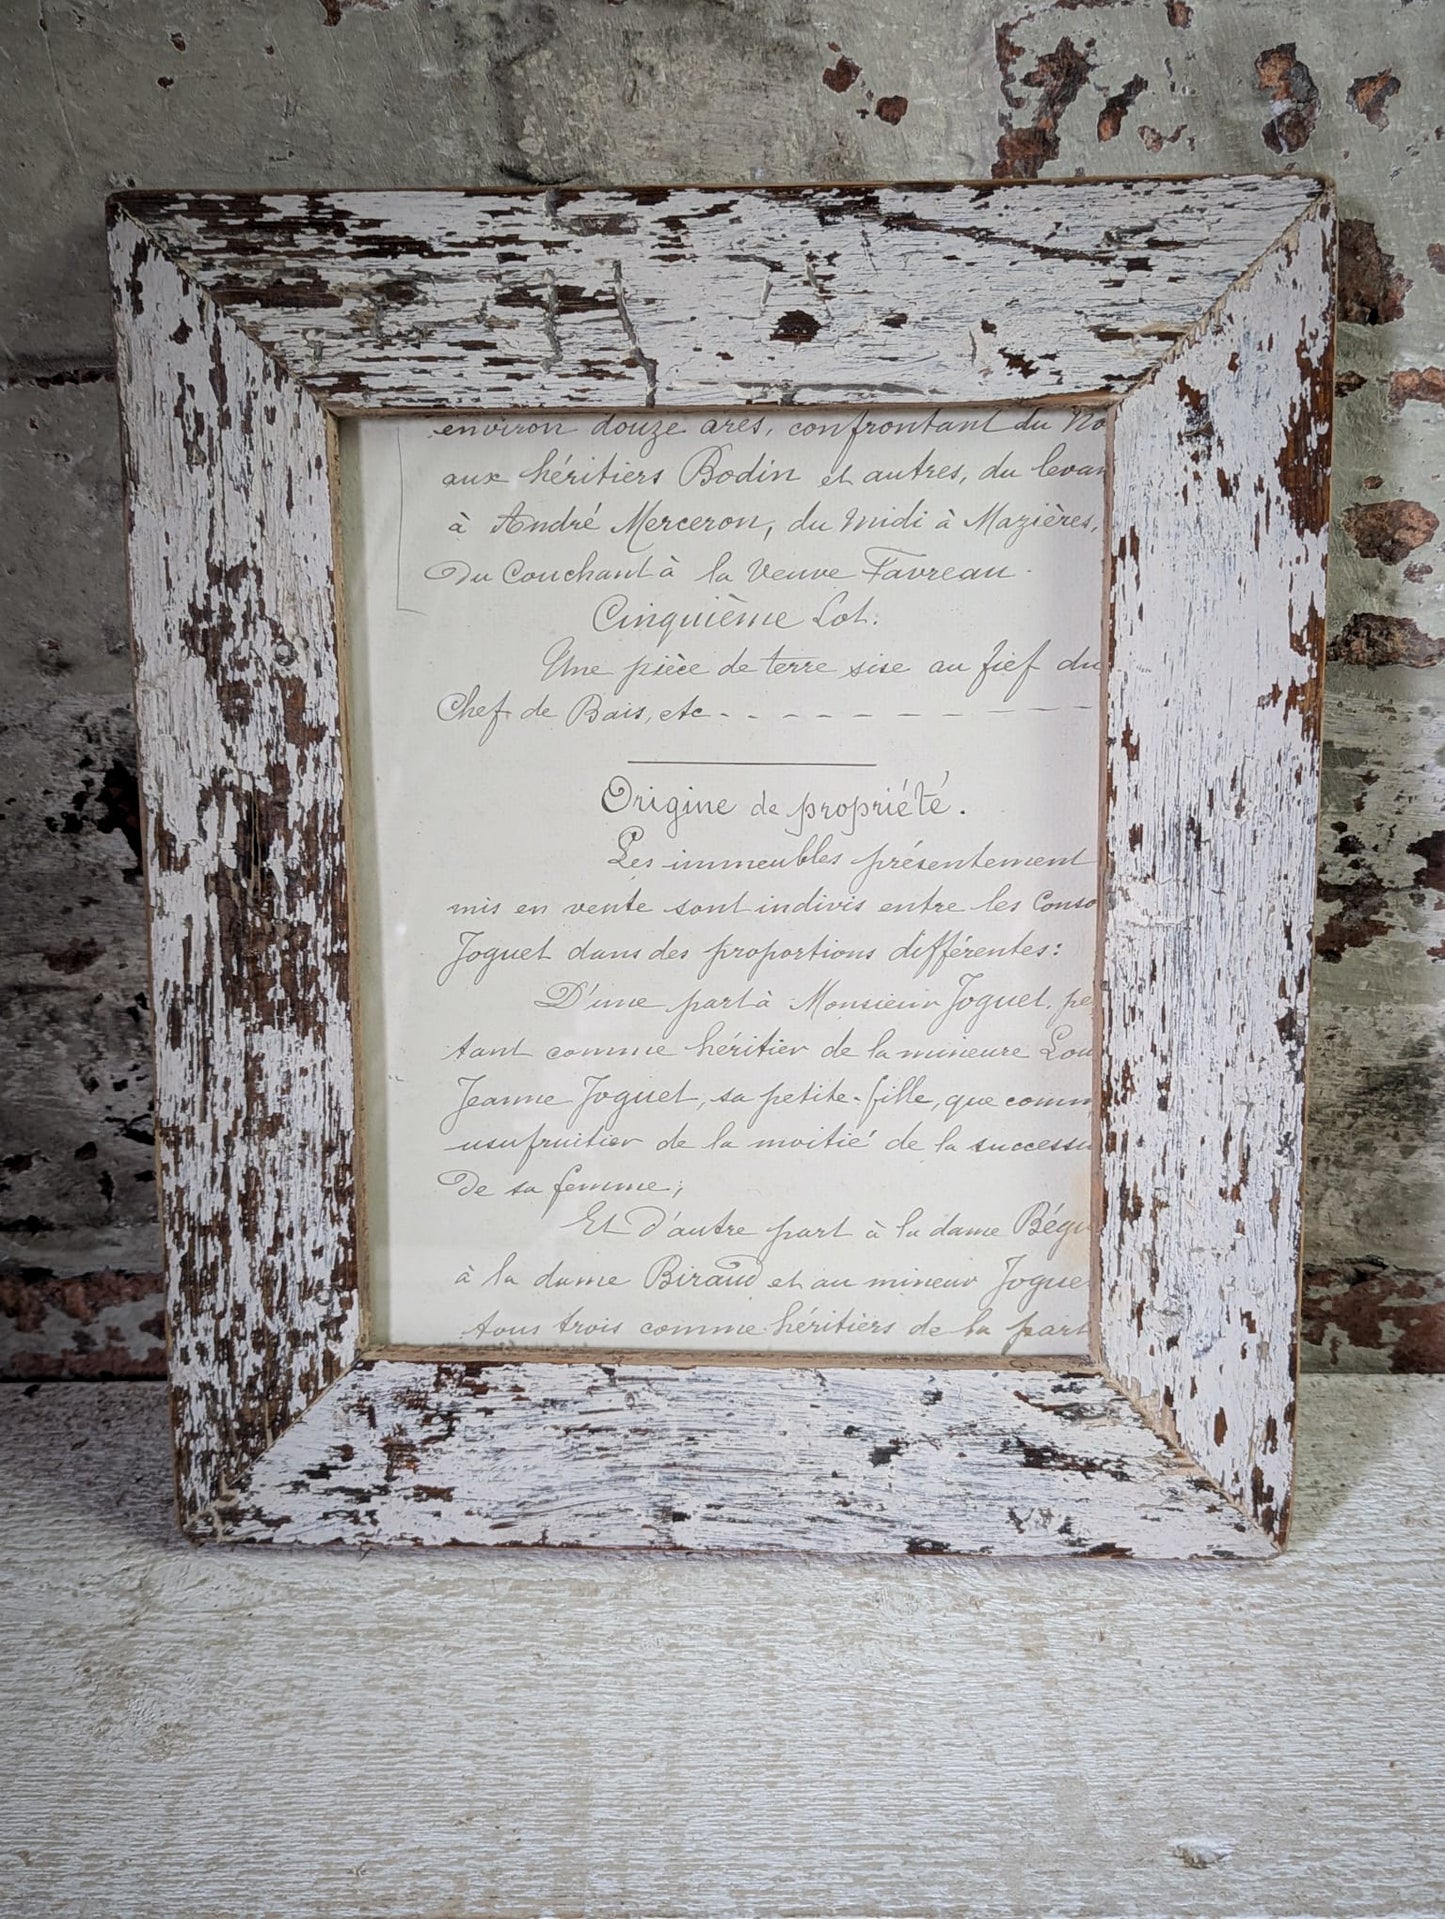 environ douze ares, confrontant du No
aux héritiers Bodin et autres, du levan
à André Merceron, du midi à Mazières,
Du Couchant à la Veuve Favreau.
Cinquième Lot.
Une pièce de terre sise au fief du
Chef de Bais, etc - - - - - - - - -
Origine de propriété.
Les immeubles présentement
mis en vente sont indivis entre les Conso
Joguet dans des proportions différentes:
D'une part à Monsieur Joguet, pe
tant comme héritier de la mineure Lou
Jeanne Joguet, sa petite-fille, que comm
usufruitier de la moitié de la successi
De sa femme;
Et D'autre part à la dame Bégu
à la dame Biraud et au mineur Jogue
tous trois comme héritiers de la part